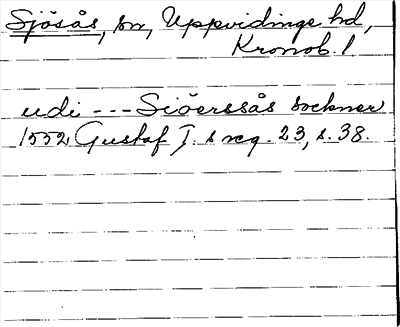 Sjösås, sn, Uppvidinge hd,
Kronob. l
udi --- Siöerssås sockner
1552 Gustaf I. s reg. 23, s. 38.